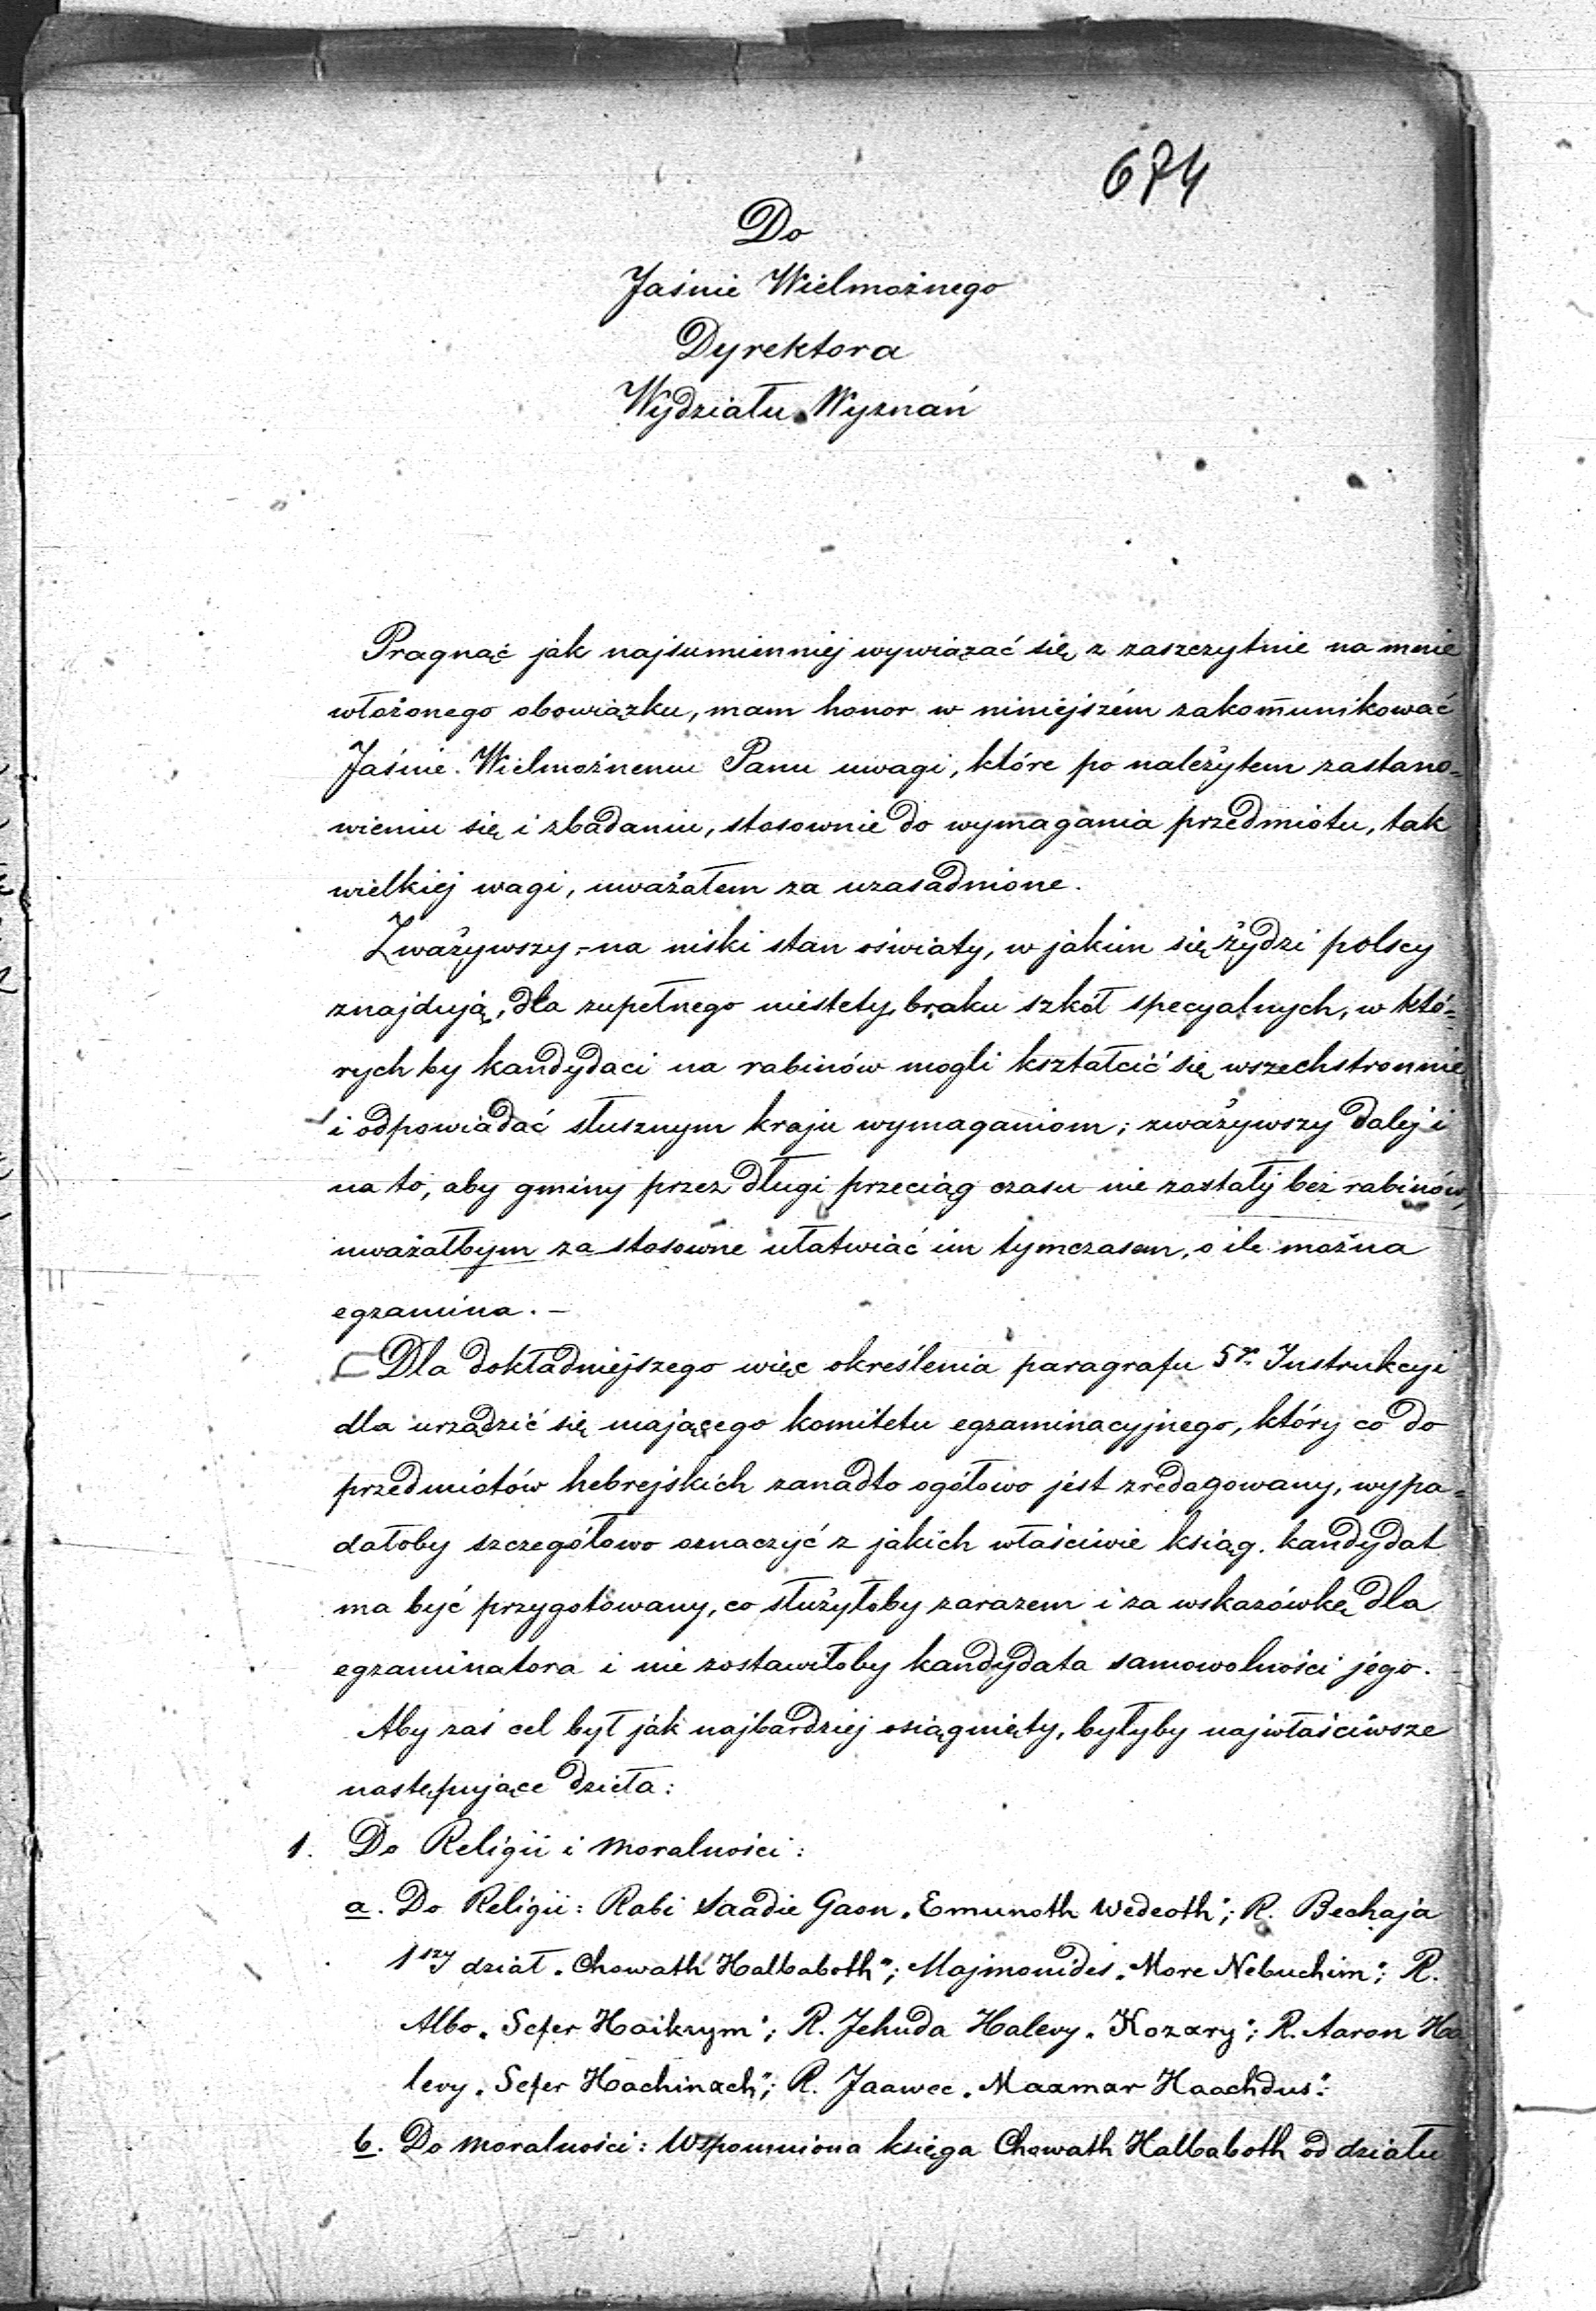 674
Do
Jaśnie Wielmożnego
Dyrektora
Wydziału Wyznań
Pragnąc jak najsumienniej wywiązać się z zaszczytnie na mnie
włożonego obowiązku, mam honor w niniejszém zakom̄unikować
Jaśnie Wielmożnemu Panu uwagi, które po należytem zastano=
wieniu się i zbadaniu, stosownie do wymagania przedmiotu, tak
wielkiej wagi, uważałem za uzasadnione.
Zważywszy na niski stan oświaty, w jakim się żydzi polscy
znajdują, dla zupełnego niestety braku szkół specyalnych, w któ=
rych by kandydaci na rabinów mogli kształcić się wszechstronnie
i odpowiadać słusznym kraju wymaganiom; zważywszy dalej i
na to, aby gminy przez długi przeciąg czasu nie zostały bez rabinów,
uważałbym za stosowne ułatwiać im tymczasem, o ile można
egzamina. –
Dla dokładniejszego więc określenia paragrafu 5go Instrukcyi
dla urządzić się mającego komitetu egzaminacyjnego, który co do
przedmiotów hebrejskich zanadto ogółowo jest zredagowany, wypa=
dałoby szczegółowo oznaczyć z jakich właściwie ksiąg kandydat
ma być przygotowany, co służyłoby zarazem i za wskazówkę dla
egzaminatora i nie zostawiłoby kandydata samowolności jego.
Aby zaś cel był jak najbardziej osiągnięty, byłyby najwłaściwsze
następujące dzieła:
1. Do Religii i moralności:
a. Do Religii: Rabi Saadie Gaon „Emunoth Wedeoth"; R. Bechaja
1szy dział „Chowath Halbaboth"; Majmonides „More Nebuchim"; R.
Albo „Sefer Haikrym"; R. Jehuda Halevy „Kozary"; R. Aaron Ha
levy „Sefer Hachinach"; R. Jaawec „Maamar Haachdus":
b. Do moralności: Wspomniona księga Chowath Halbaboth od działu